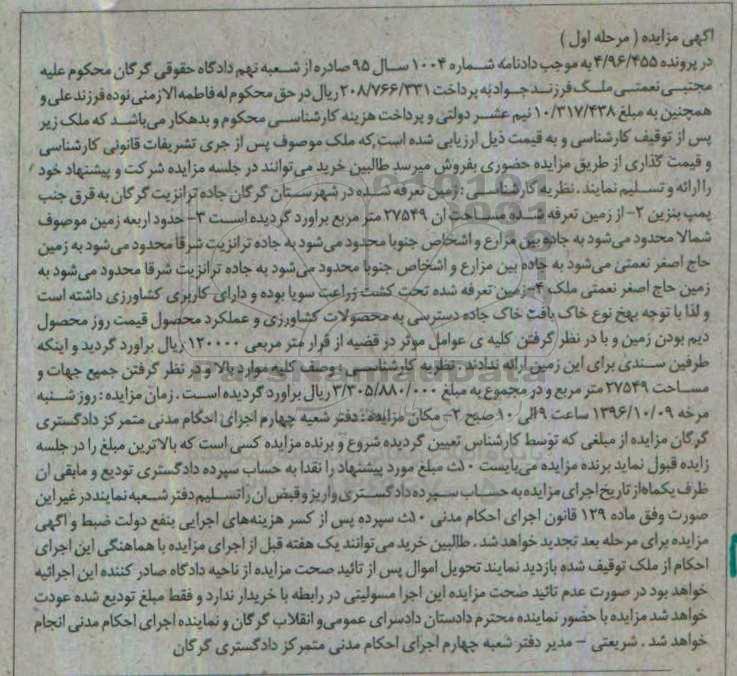 آگهی مزایده ( مرحله اول )
در پرونده ۴/۹۶/۴۵۵ به موجب دادنامه شماره ۱۰۰۴ سال ۹۵ صادره از شعبه نهم دادگاه حقوقی گرگان محکوم علیه
مجتبی نعمتی ملک فرزند جواد به پرداخت ۲۰۸/۷۶۶/۳۳۱ ریال در حق محکوم له فاطمه الازمنی نوده فرزند علی و
همچنین به مبلغ ۱۰/۳۱۷/۴۳۸ نیم عشر دولتی و پرداخت هزینه کارشناسی محکوم و بدهکار می‌باشد که ملک زیر
پس از توقیف کارشناسی و به قیمت ذیل ارزیابی شده است که ملک موصوف پس از جری تشریفات قانونی کارشناسی
و قیمت گذاری از طریق مزایده حضوری بفروش میرسد طالبین خرید می‌توانند در جلسه مزایده شرکت و پیشنهاد خود
را ارائه و تسلیم نمایند . نظریه کارشناسی : زمین تعرفه شده در شهرستان گرگان جاده ترانزیت گرگان به قرق جنب
پمپ بنزین ۲- از زمین تعرفه شده مساحت آن ۲۷۵۴۹ متر مربع برآورد گردیده است ۳- حدود اربعه زمین موصوف
شمالا محدود می‌شود به جاده بین مزارع و اشخاص جنوبا محدود می‌شود به جاده ترانزیت شرقا محدود می‌شود به زمین
حاج اصغر نعمتی می‌شود به جاده بین مزارع و اشخاص جنوبا محدود می‌شود به جاده ترانزیت شرقا محدود می‌شود به
زمین حاج اصغر نعمتی ملک ۴- زمین تعرفه شده تحت کشت زراعت سویا بوده و دارای کاربری کشاورزی داشته است
و لذا با توجه بهخ نوع خاک بافت خاک جاده دسترسی به محصولات کشاورزی و عملکرد محصول قیمت روز محصول
دیم بودن زمین و با در نظر گرفتن کلیه ی عوامل موثر در قضیه از قرار متر مربعی ۱۲۰۰۰۰ ریال برآورد گردید و اینکه
طرفین سندی برای این زمین ارائه ندادند . نظریه کارشناسی : وصف کلیه موارد بالا و در نظر گرفتن جمیع جهات و
مساحت ۲۷۵۴۹ متر مربع و در مجموع به مبلغ ۳/۳۰۵/۸۸۰/۰۰۰ ریال برآورد گردیده است . زمان مزایده : روز شنبه
مرخه ۱۳۹۶/۱۰/۰۹ ساعت ۹ الی ۱۰ صبح ۲- مکان مزایده : دفتر شعبه چهارم اجرای احکام مدنی متمرکز دادگستری
گرگان مزایده از مبلغی که توسط کارشناس تعیین گردیده شروع و برنده مزایده کسی است که بالاترین مبلغ را در جلسه
زایده قبول نماید برنده مزایده می‌بایست ۱۰ث مبلغ مورد پیشنهاد را نقدا به حساب سپرده دادگستری تودیع و مابقی ان
ظرف یکماه از تاریخ اجرای مزایده به حساب سپرده دادگستری واریز و قبض ان را تسلیم دفتر شعبه نمایند در غیر این
صورت وفق ماده ۱۲۹ قانون اجرای احکام مدنی ۱۰ث سپرده پس از کسر هزینه‌های اجرایی بنفع دولت ضبط و اگهی
مزایده برای مرحله بعد تجدید خواهد شد . طالبین خرید می توانند یک هفته قبل از اجرای مزایده با هماهنگی این اجرای
احکام از ملک توقیف شده بازدید نمایند تحویل اموال پس از تائید صحت مزایده از ناحیه دادگاه صادر کننده این اجرائیه
خواهد بود در صورت عدم تائید صحت مزایده این اجرا مسولیتی در رابطه با خریدار ندارد و فقط مبلغ تودیع شده عودت
خواهد شد مزایده با حضور نماینده محترم دادستان دادسرای عمومی و انقلاب گرگان و نماینده اجرای احکام مدنی انجام
خواهد شد . شریعتی - مدیر دفتر شعبه چهارم اجرای احکام مدنی متمرکز دادگستری گرگان